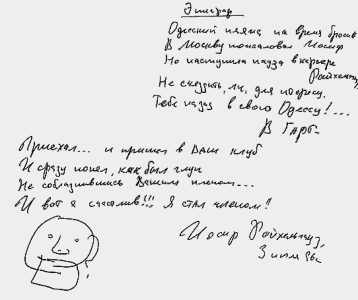 Эпиграф
Одесский пляж на время бросив
В Москву пожаловал Иосиф
Но наступила пауза в карьере
Райхельгауз
Не съездить ли, для интересу,
Тебе назад в свою Одессу!...
В. Гафт
Приехал... и пришёл в Ваш клуб
И сразу понял, как был глуп
Не соблазнившись Вашим членом...
И вот я счастлив!!! Я стал членом!
Иосиф Райхельгауз,